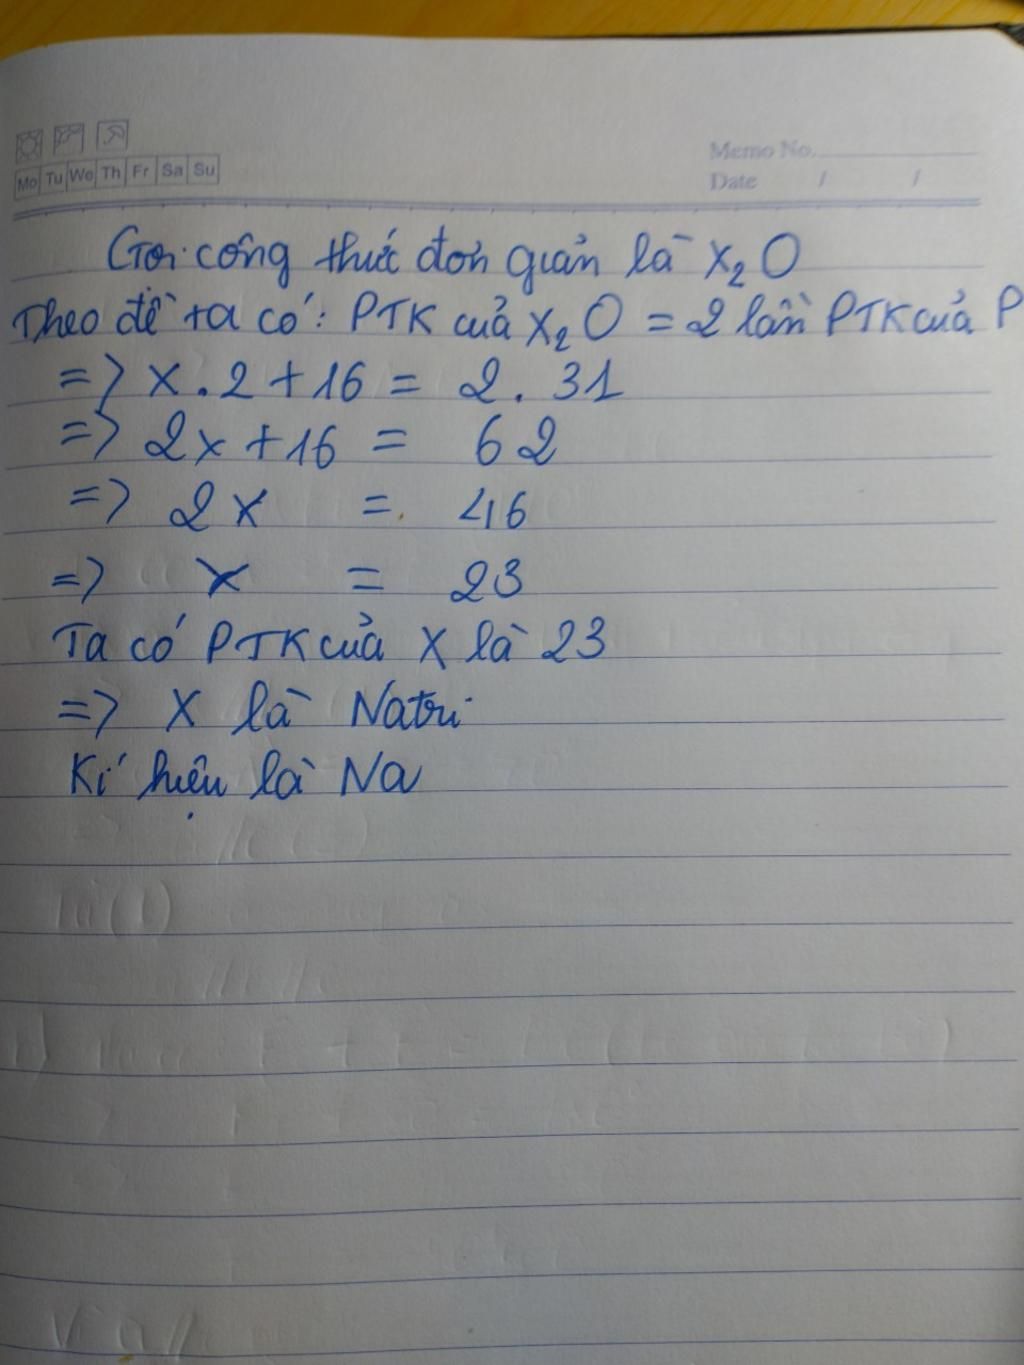 Mo Tu We Th Fr Sa Su
Memo No.
Date / /
Gọi công thức đơn giản là X₂O
Theo đề ta có: PTK của X₂O = 2 lần PTK của P
=> X . 2 + 16 = 2 . 31
=> 2x + 16 = 62
=> 2x = 46
=> x = 23
Ta có PTK của X là 23
=> X là Natri
Kí hiệu là Na